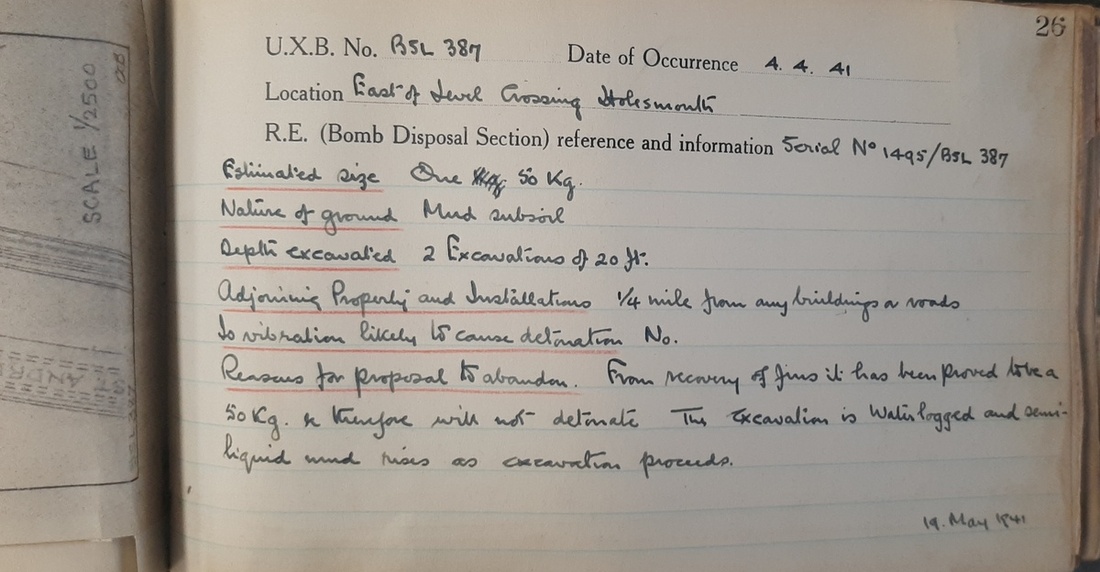 SCALE 1/2500
26
U.X.B. No. BSL 387 Date of Occurrence 4. 4. 41
Location East of Level Crossing Holesmouth
R.E. (Bomb Disposal Section) reference and information Serial No 1495/BSL 387
Estimated size One 50 Kg.
Nature of ground Mud subsoil
Depth excavated 2 Excavations of 20 ft.
Adjoining Property and Installations 1/4 mile from any buildings or roads
Is vibration likely to cause detonation No.
Reasons for proposal to abandon. From recovery of fins it has been proved to be a
50 Kg. & therefore will not detonate The Excavation is Waterlogged and semi-
liquid mud rises as excavation proceeds.
19. May 1941